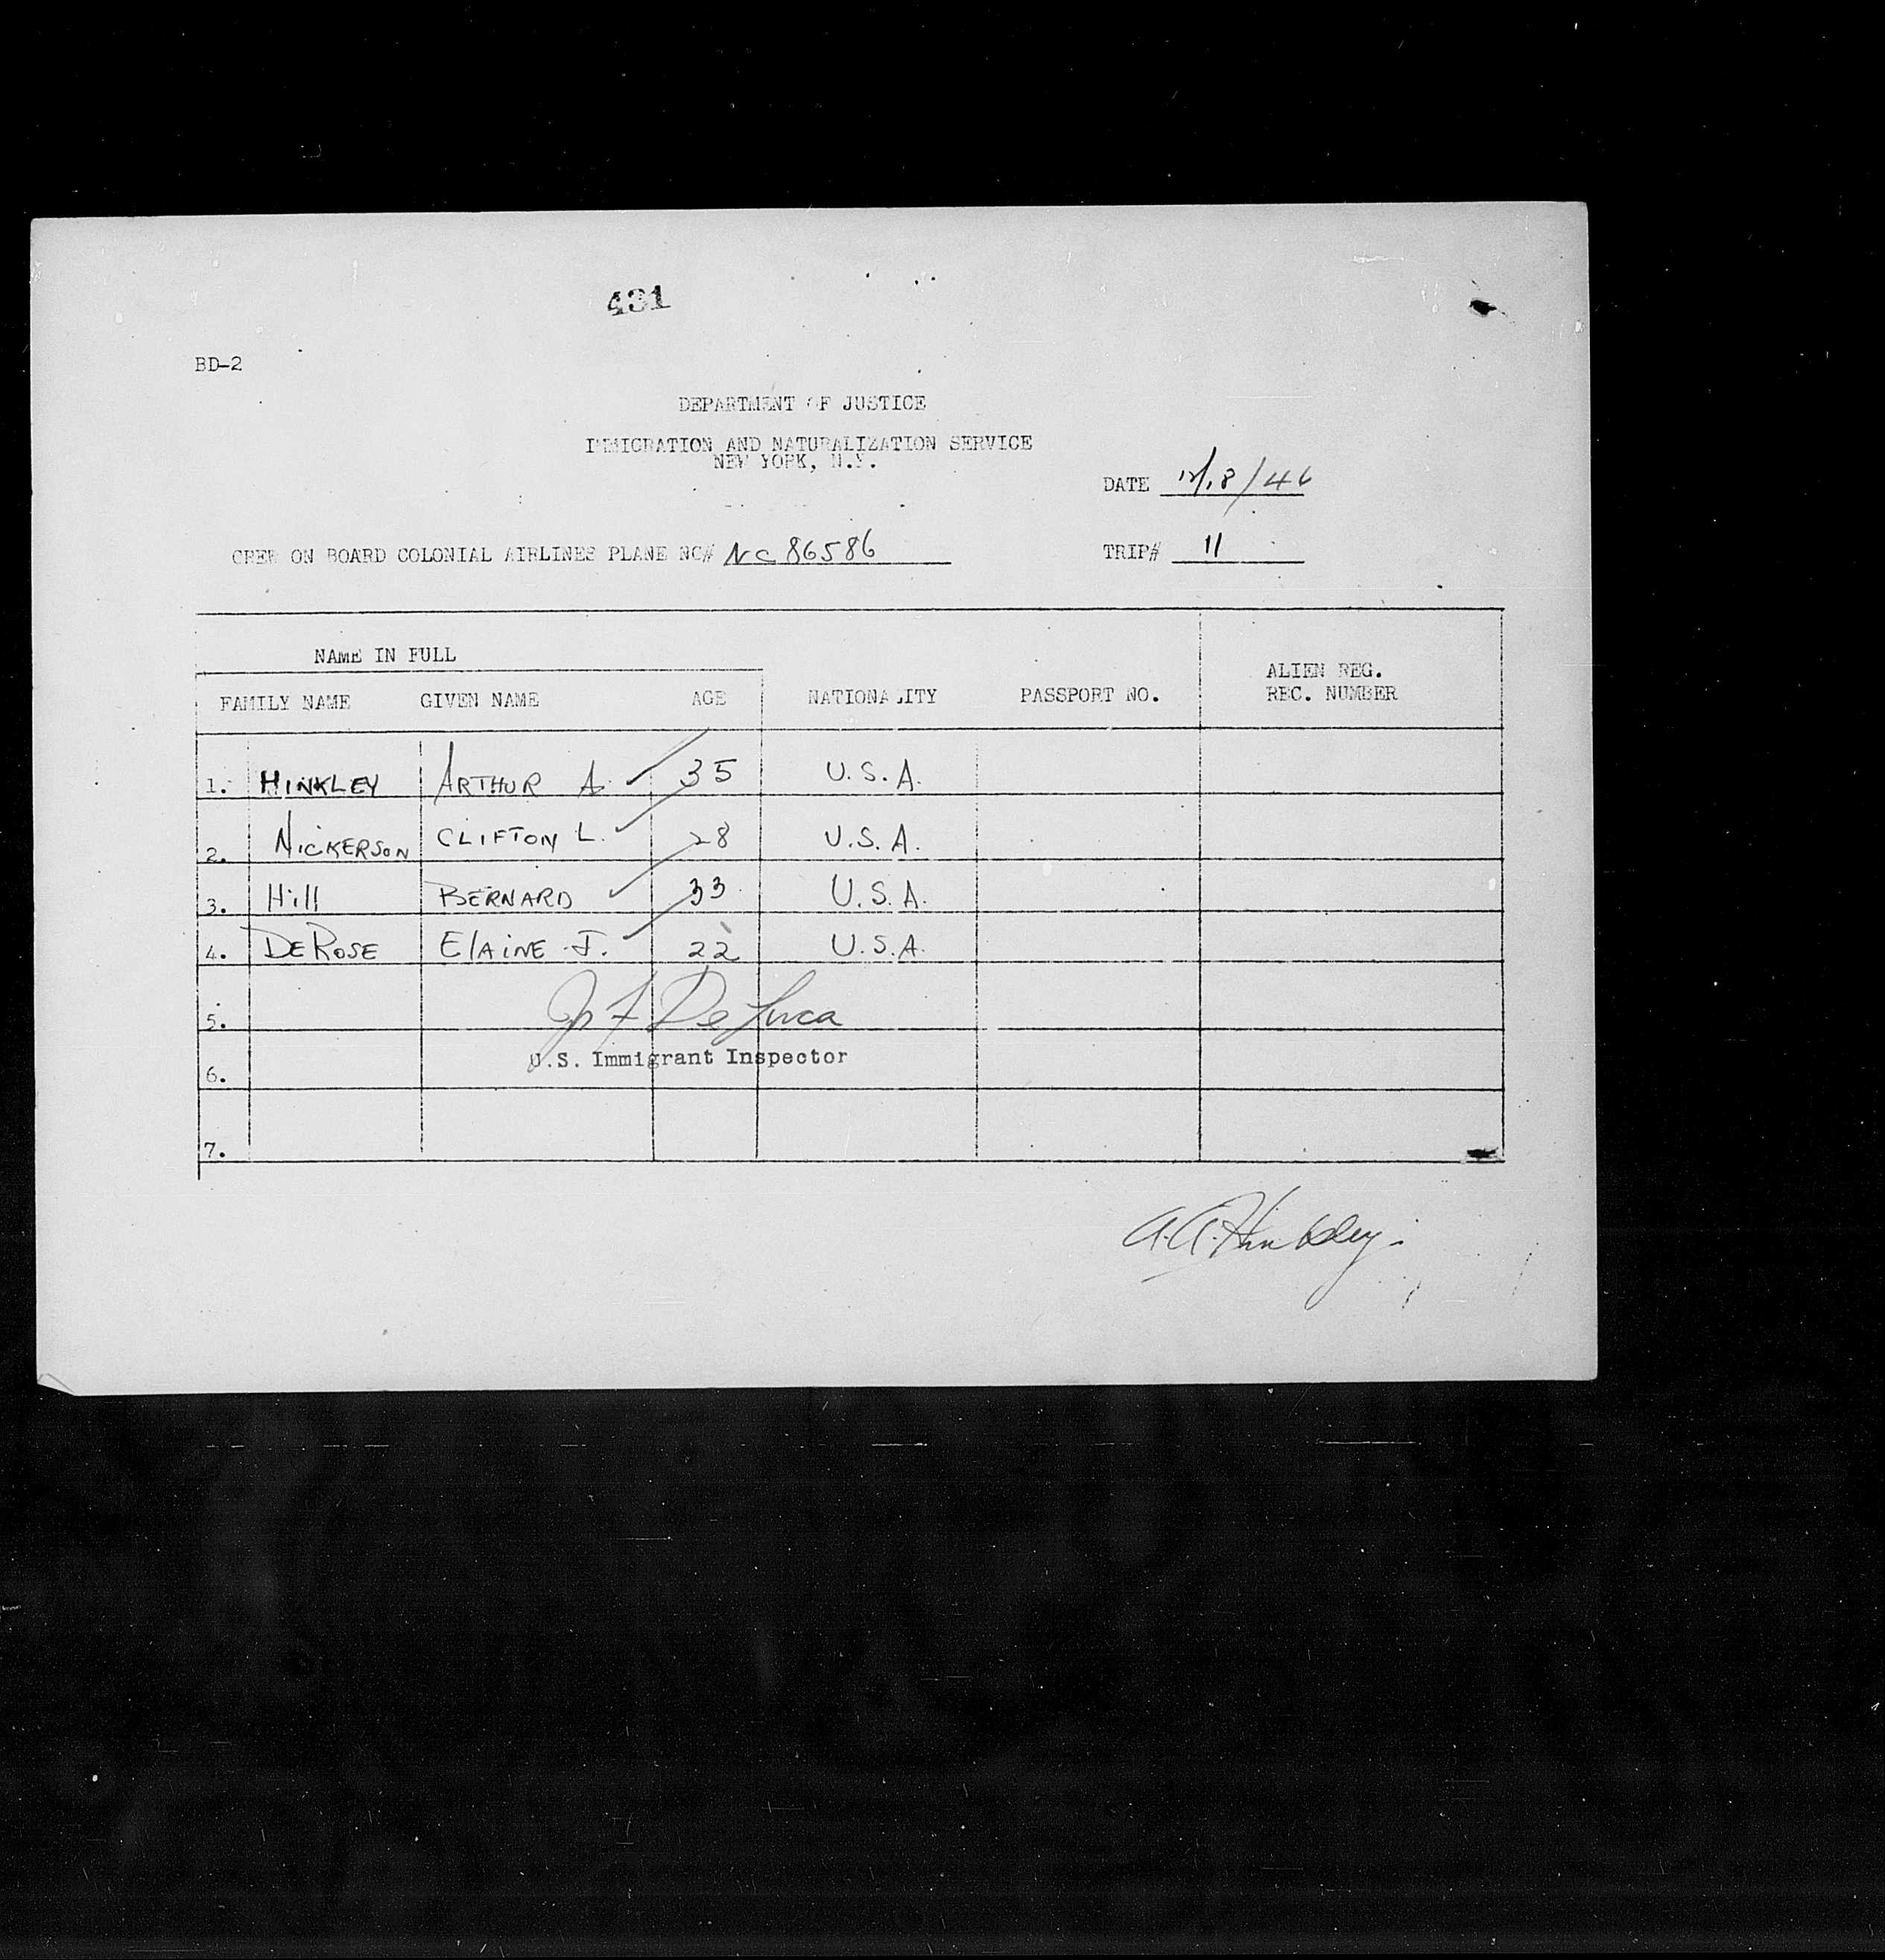 431
BD-2
DEPARTMENT OF JUSTICE
IMMIGRATION AND NATURALIZATION SERVICE
NEW YORK, N.Y.
DATE 12/18/46
CREW ON BOARD COLONIAL AIRLINES PLANE NC# NC 86586 TRIP# 11
NAME IN FULL
FAMILY NAME GIVEN NAME AGE NATIONALITY PASSPORT NO. ALIEN REG. REC. NUMBER
1. HINKLEY ARTHUR A. 35 U.S.A.
2. NICKERSON CLIFTON L. 28 U.S.A.
3. Hill BERNARD 33 U.S.A.
4. DEROSE ElAiNE J. 22 U.S.A.
5. De Luca
U.S. Immigrant Inspector
6.
7.
A.A. Hinkley